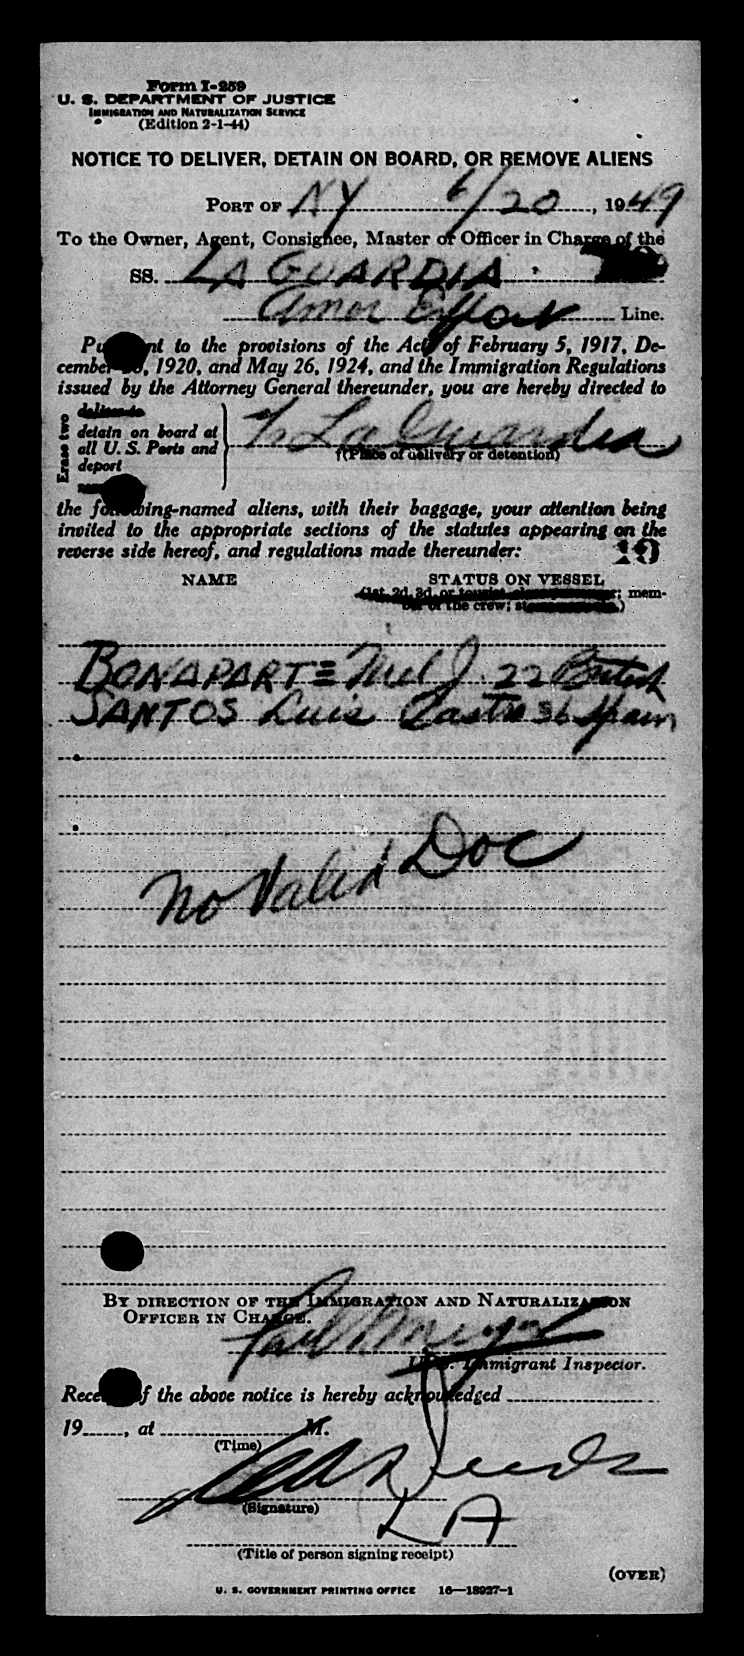 Form I-259
U. S. DEPARTMENT OF JUSTICE
IMMIGRATION AND NATURALIZATION SERVICE
(Edition 2-1-44)
NOTICE TO DELIVER, DETAIN ON BOARD, OR REMOVE ALIENS
PORT OF NY 6/20, 1949
To the Owner, Agent, Consignee, Master or Officer in Charge of the
SS. LA GUARDIA
Amer Export Line.
Pursuant to the provisions of the Acts of February 5, 1917, De-
cember 26, 1920, and May 26, 1924, and the Immigration Regulations
issued by the Attorney General thereunder, you are hereby directed to
Erase two
detain on board at
all U. S. Ports and
deport
La Guardia
(Place of delivery or detention)
the following-named aliens, with their baggage, your attention being
invited to the appropriate sections of the statutes appearing on the
reverse side hereof, and regulations made thereunder:
19
NAME STATUS ON VESSEL
(1st, 2d, 3d, or tourist class passenger; mem-
ber of the crew;
BONAPARTE Mel J. 22 British
SANTOS Luis Castro 36 Spain
No Valid Doc
BY DIRECTION OF THE IMMIGRATION AND NATURALIZATION
OFFICER IN CHARGE.
Immigrant Inspector.
Receipt of the above notice is hereby acknowledged
19, at M.
(Time)
(Signature)
LA
(Title of person signing receipt)
(OVER)
U. S. GOVERNMENT PRINTING OFFICE 16—18927-1